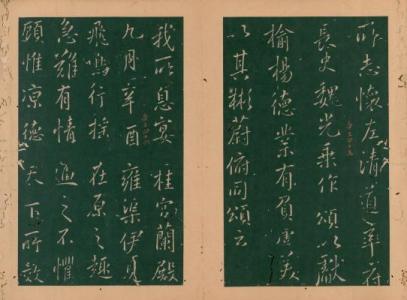 所志懷左清道率府
長史魏光乘作頌以獻
揄揚德業有負虛美
以其彬蔚俯同頌云
我所息宴 桂宮蘭殿
九月辛酉 雍渠伊
飛鳴行搖 在原之趣
急難有情 逼之不懼
顧惟涼德 天下所